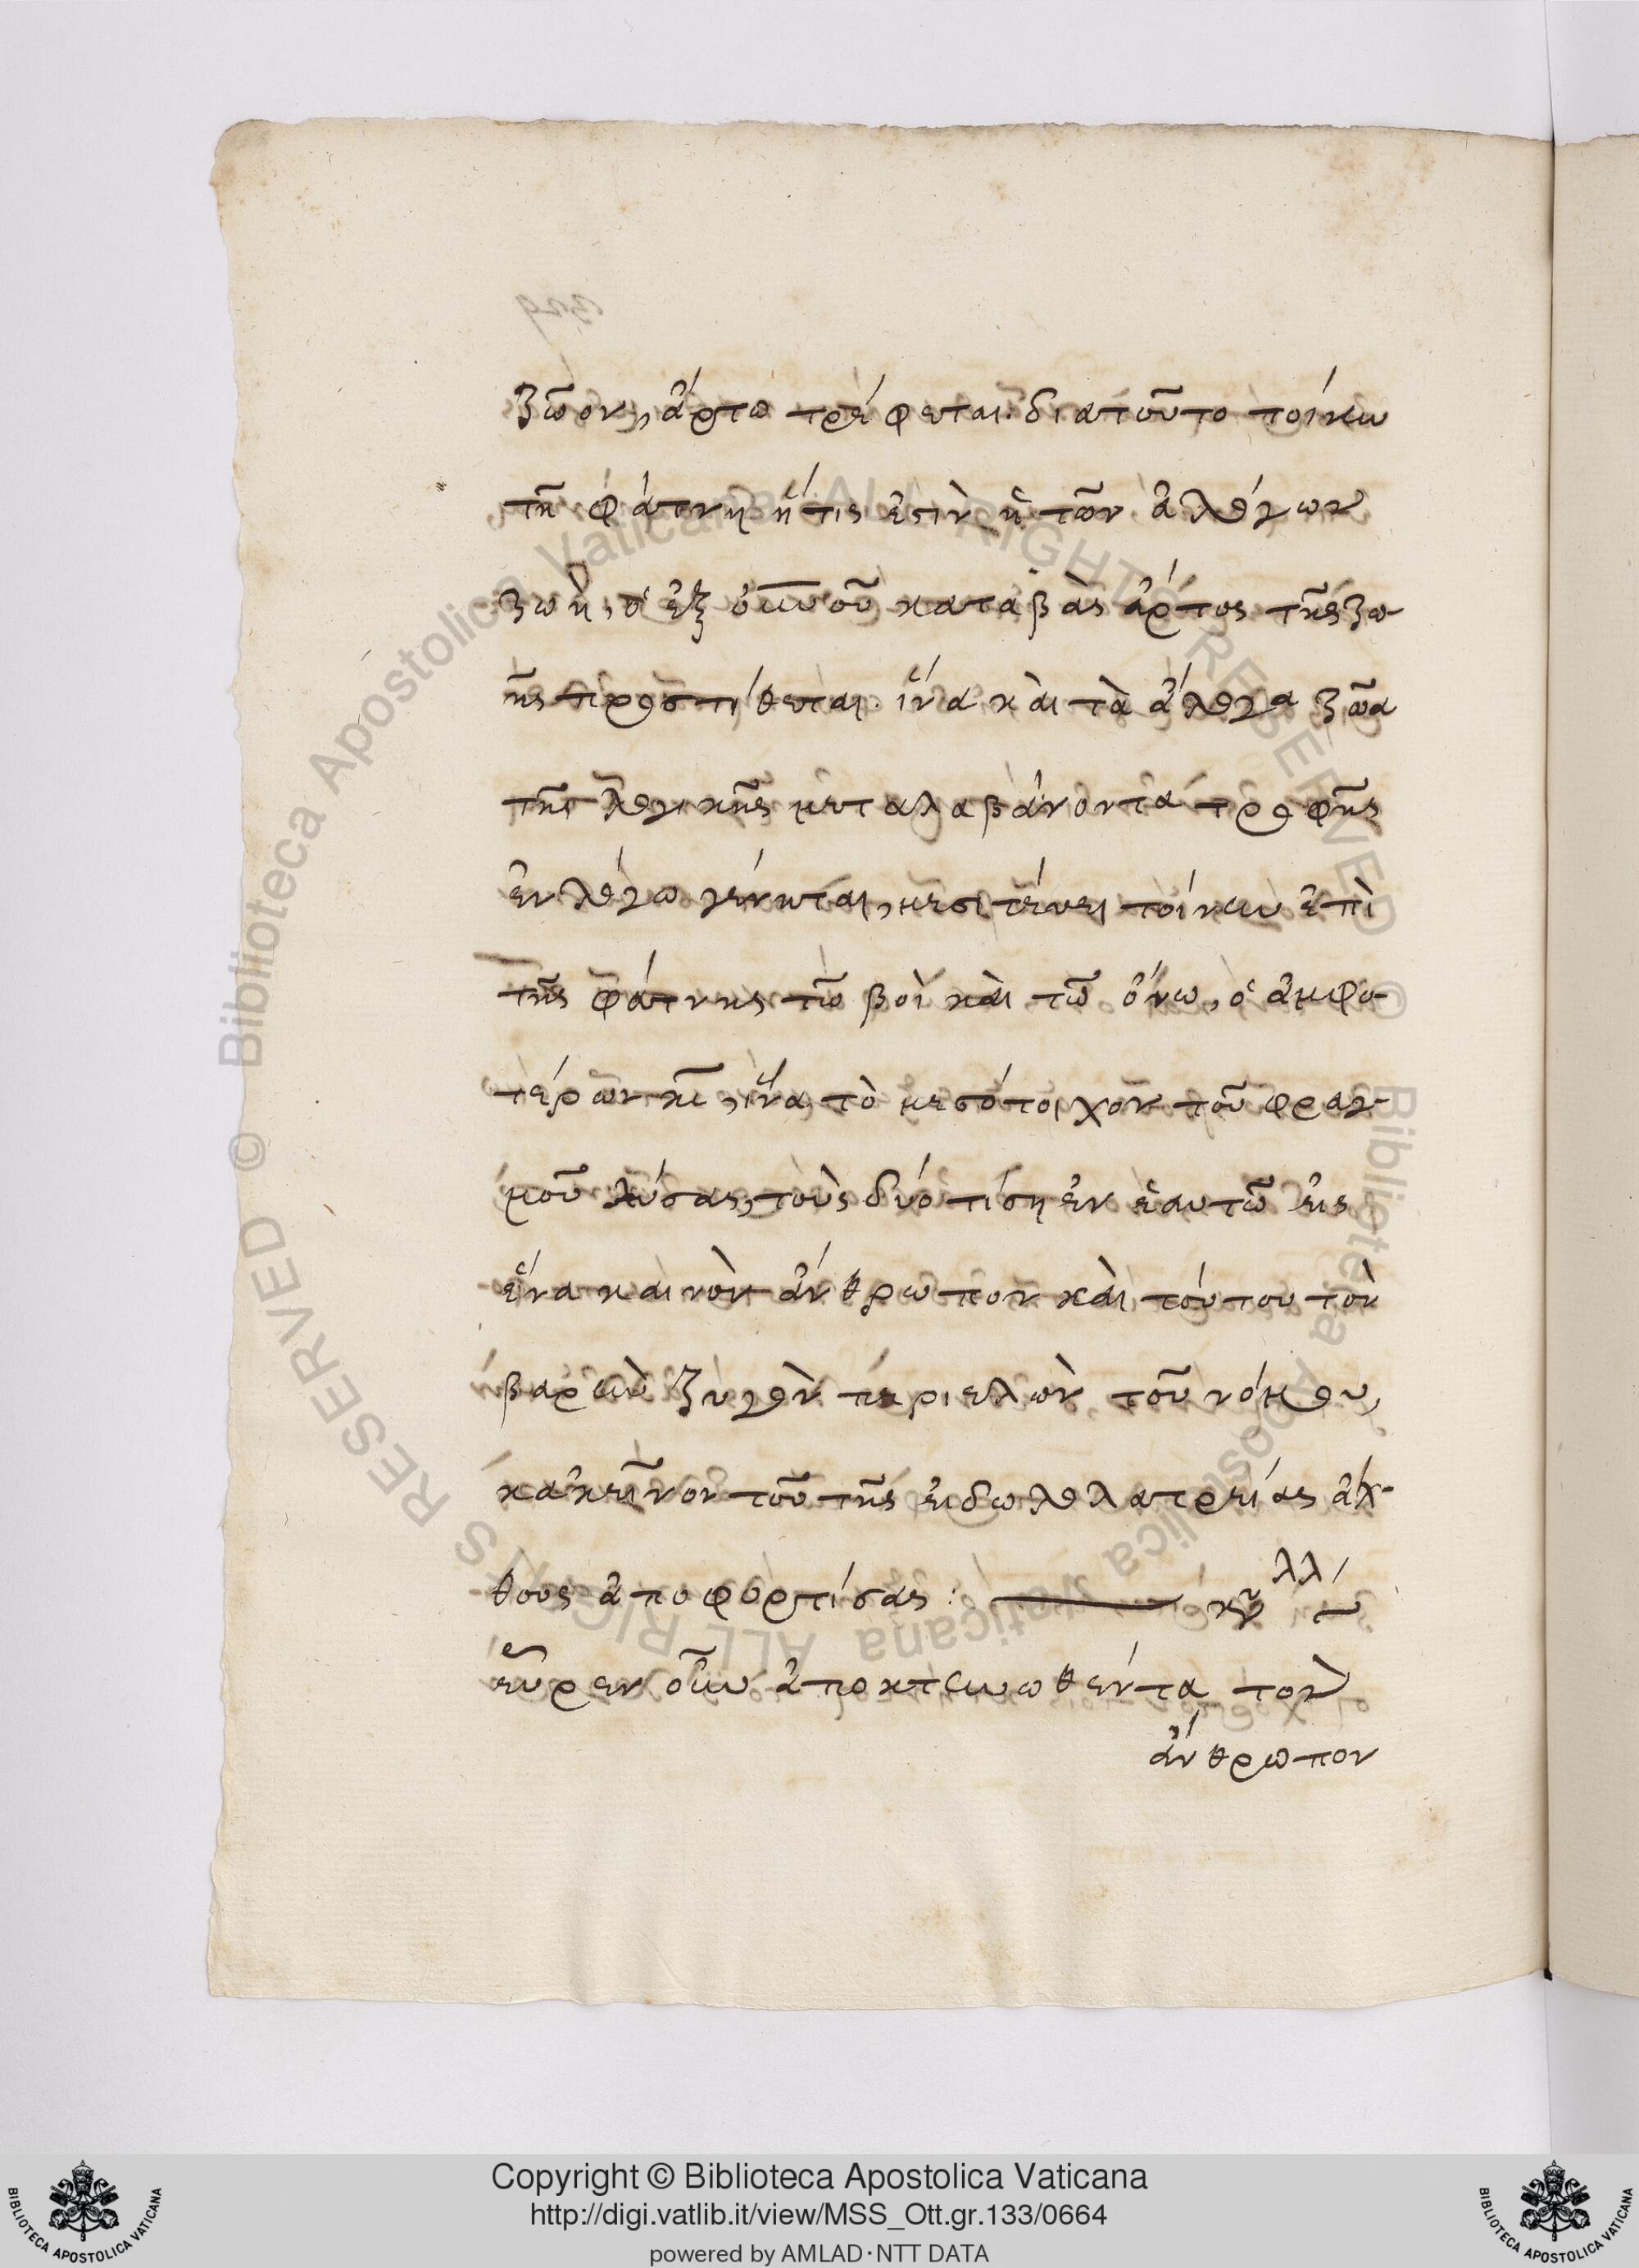 ζῶον, ἄρτω τρέφεται· διατοῦτο τοίνυν
τῆ φάτνη ἥτις ἐστὶν ἡ τῶν ἀλόγων
ζωὴ, ὁ ἐξ οὐνοῦ καταβὰς ἄρτος τῆς ζω-
ῆς προστίθεται· ἵνα καὶ τὰ ἄλογα ζῶα
τῆς λογικῆς μεταλαβάνοντα τροφῆς
ἐν λόγω γένηται, μεσιτεύει τοίνυν ἐπὶ
τῆς φάτνης τῶ βοῒ καὶ τῶ ὄνω, ὁ ἀμφο-
τέρων κς, ἵνα τὸ μεσότοιχον τοῦ φραγ-
μοῦ λύσας, τοὺς δύο τίση ἐν ἑαυτῶ εἰς
ἕνα καινὸν ἄνθρωπον καὶ τούτου τὸν
βαρὺν ζυγὸν περιελὼν τοῦ νόμου,
κἀκεῖνον τοῦ τῆς εἰδωλολατρείας ἄχ-
θους ἀποφορτίσας :
εὗρεν οὖν ἀποκτηνωθέντα τὸν
ἄνθρωπον
Copyright © Biblioteca Apostolica Vaticana
http://digi.vatlib.it/view/MSS_Ott.gr.133/0664
powered by AMLAD·NTT DATA
BIBLIOTECA APOSTOLICA VATICANA
BIBLIOTECA APOSTOLICA VATICANA
© Biblioteca Apostolica Vaticana ALL RIGHTS RESERVED
© Biblioteca Apostolica Vaticana ALL RIGHTS RESERVED